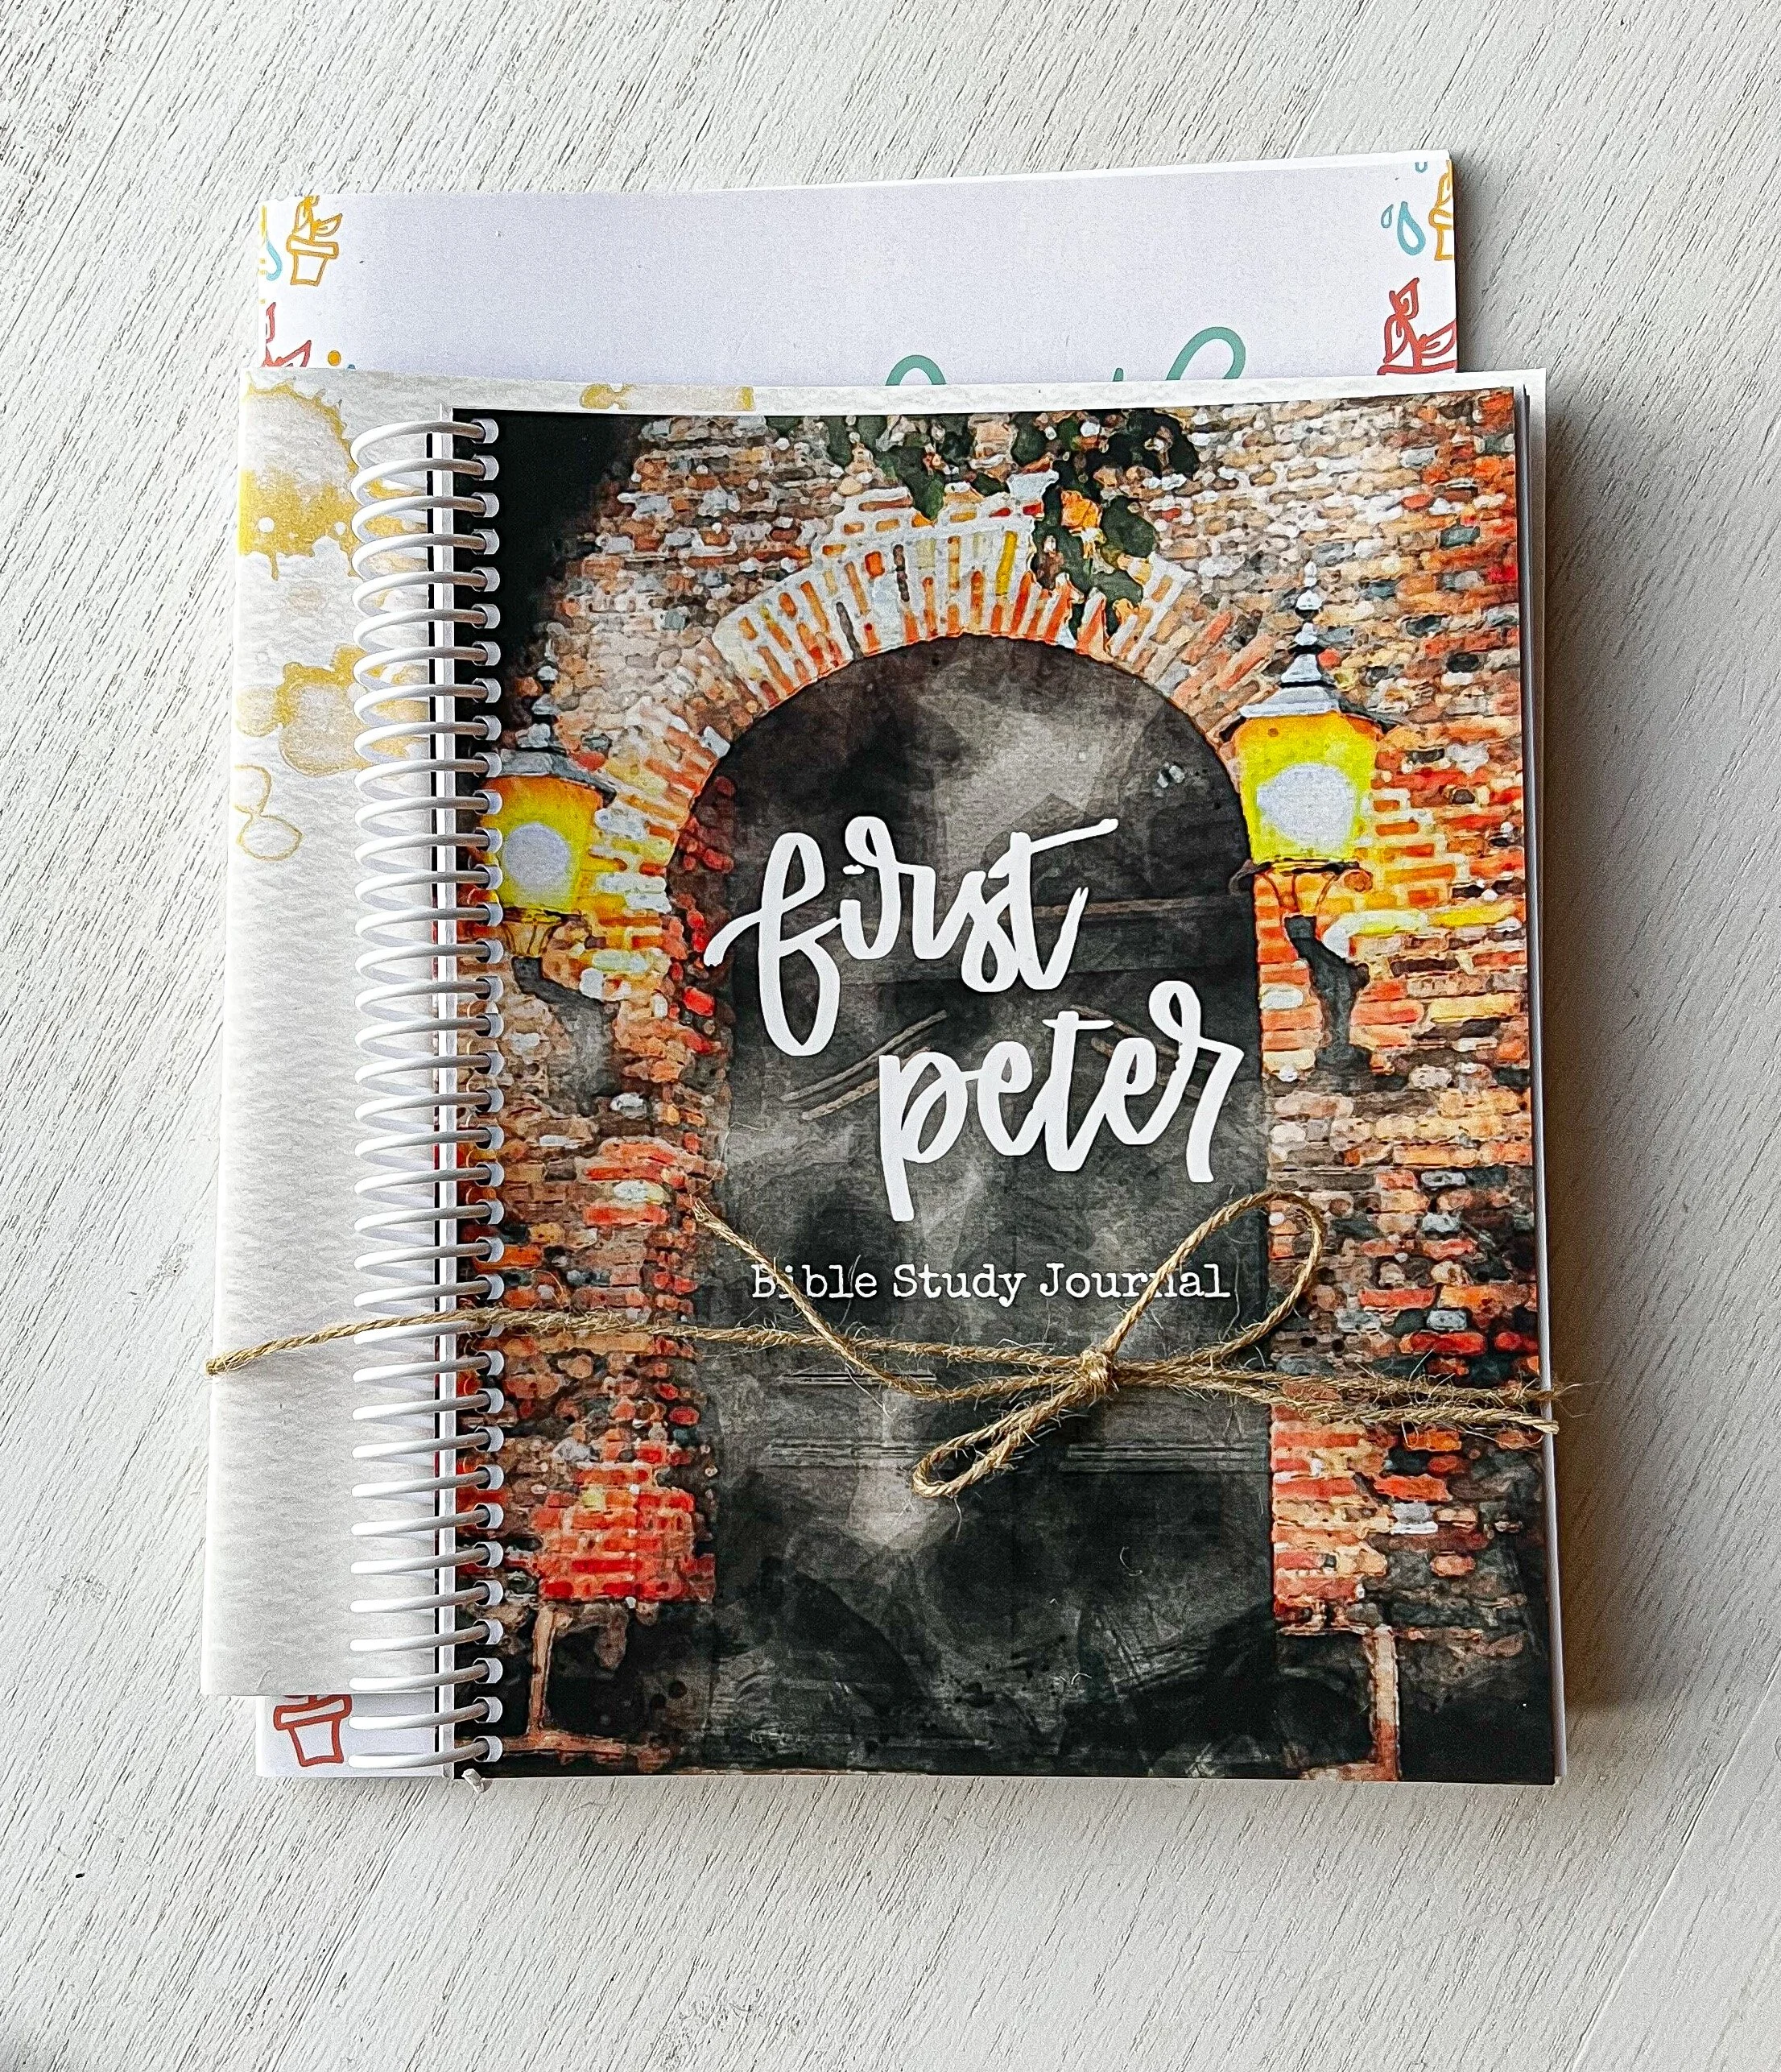 first
peter
Bible Study Journal